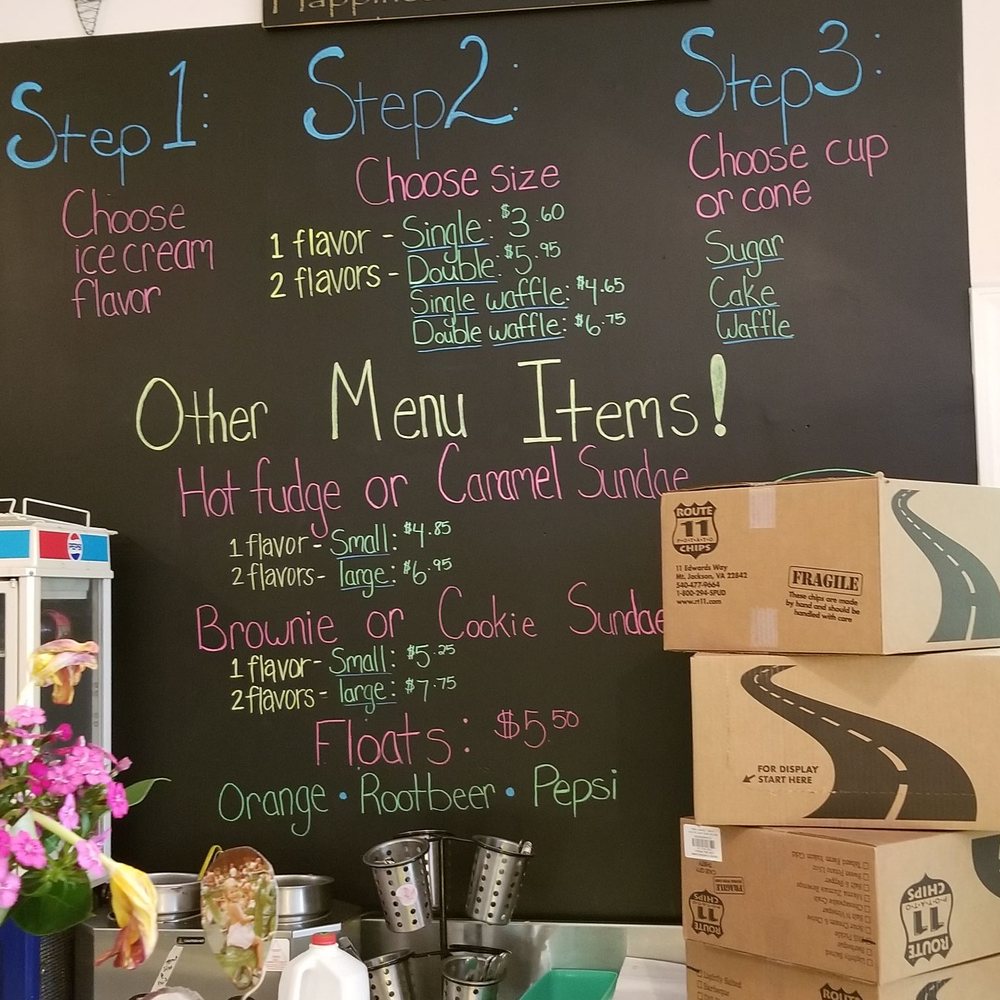 Happiness
Step 1:
Choose
ice cream
flavor
Step 2:
Choose size
1 flavor - Single: $3.60
2 flavors - Double: $5.95
Single waffle: $4.65
Double waffle: $6.75
Step 3:
Choose cup
or cone
Sugar
Cake
Waffle
Other Menu Items!
Hot fudge or Caramel Sundae
1 flavor - Small: $4.85
2 flavors - large: $6.95
Brownie or Cookie Sundae
1 flavor - Small: $5.25
2 flavors - large: $7.75
Floats: $5.50
Orange • Rootbeer • Pepsi
PEPSI
ROUTE
11
POTATO
CHIPS
11 Edwards Way
Mt. Jackson, VA 22842
540-477-9664
1-800-294-SPUD
www.rt11.com
FRAGILE
These chips are made
by hand and should be
handled with care
FOR DISPLAY
START HERE
FRAGILE
ROUTE
11
POTATO
CHIPS
ROUTE
11
POTATO
CHIPS
Lightly Salted
Barbeque
ROUTE